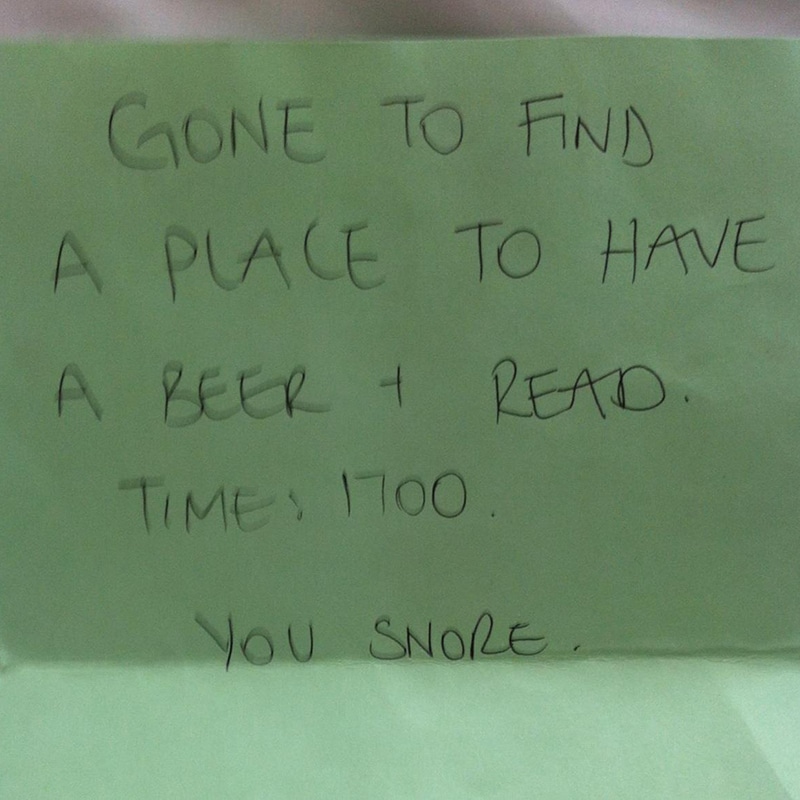 GONE TO FIND
A PLACE TO HAVE
A BEER + READ.
TIME: 1700.
YOU SNORE.